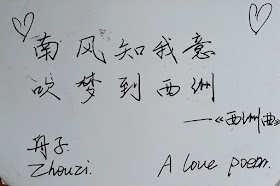 南风知我意
吹梦到西洲
——《西洲曲》
舟子
Zhouzi. A love poem.